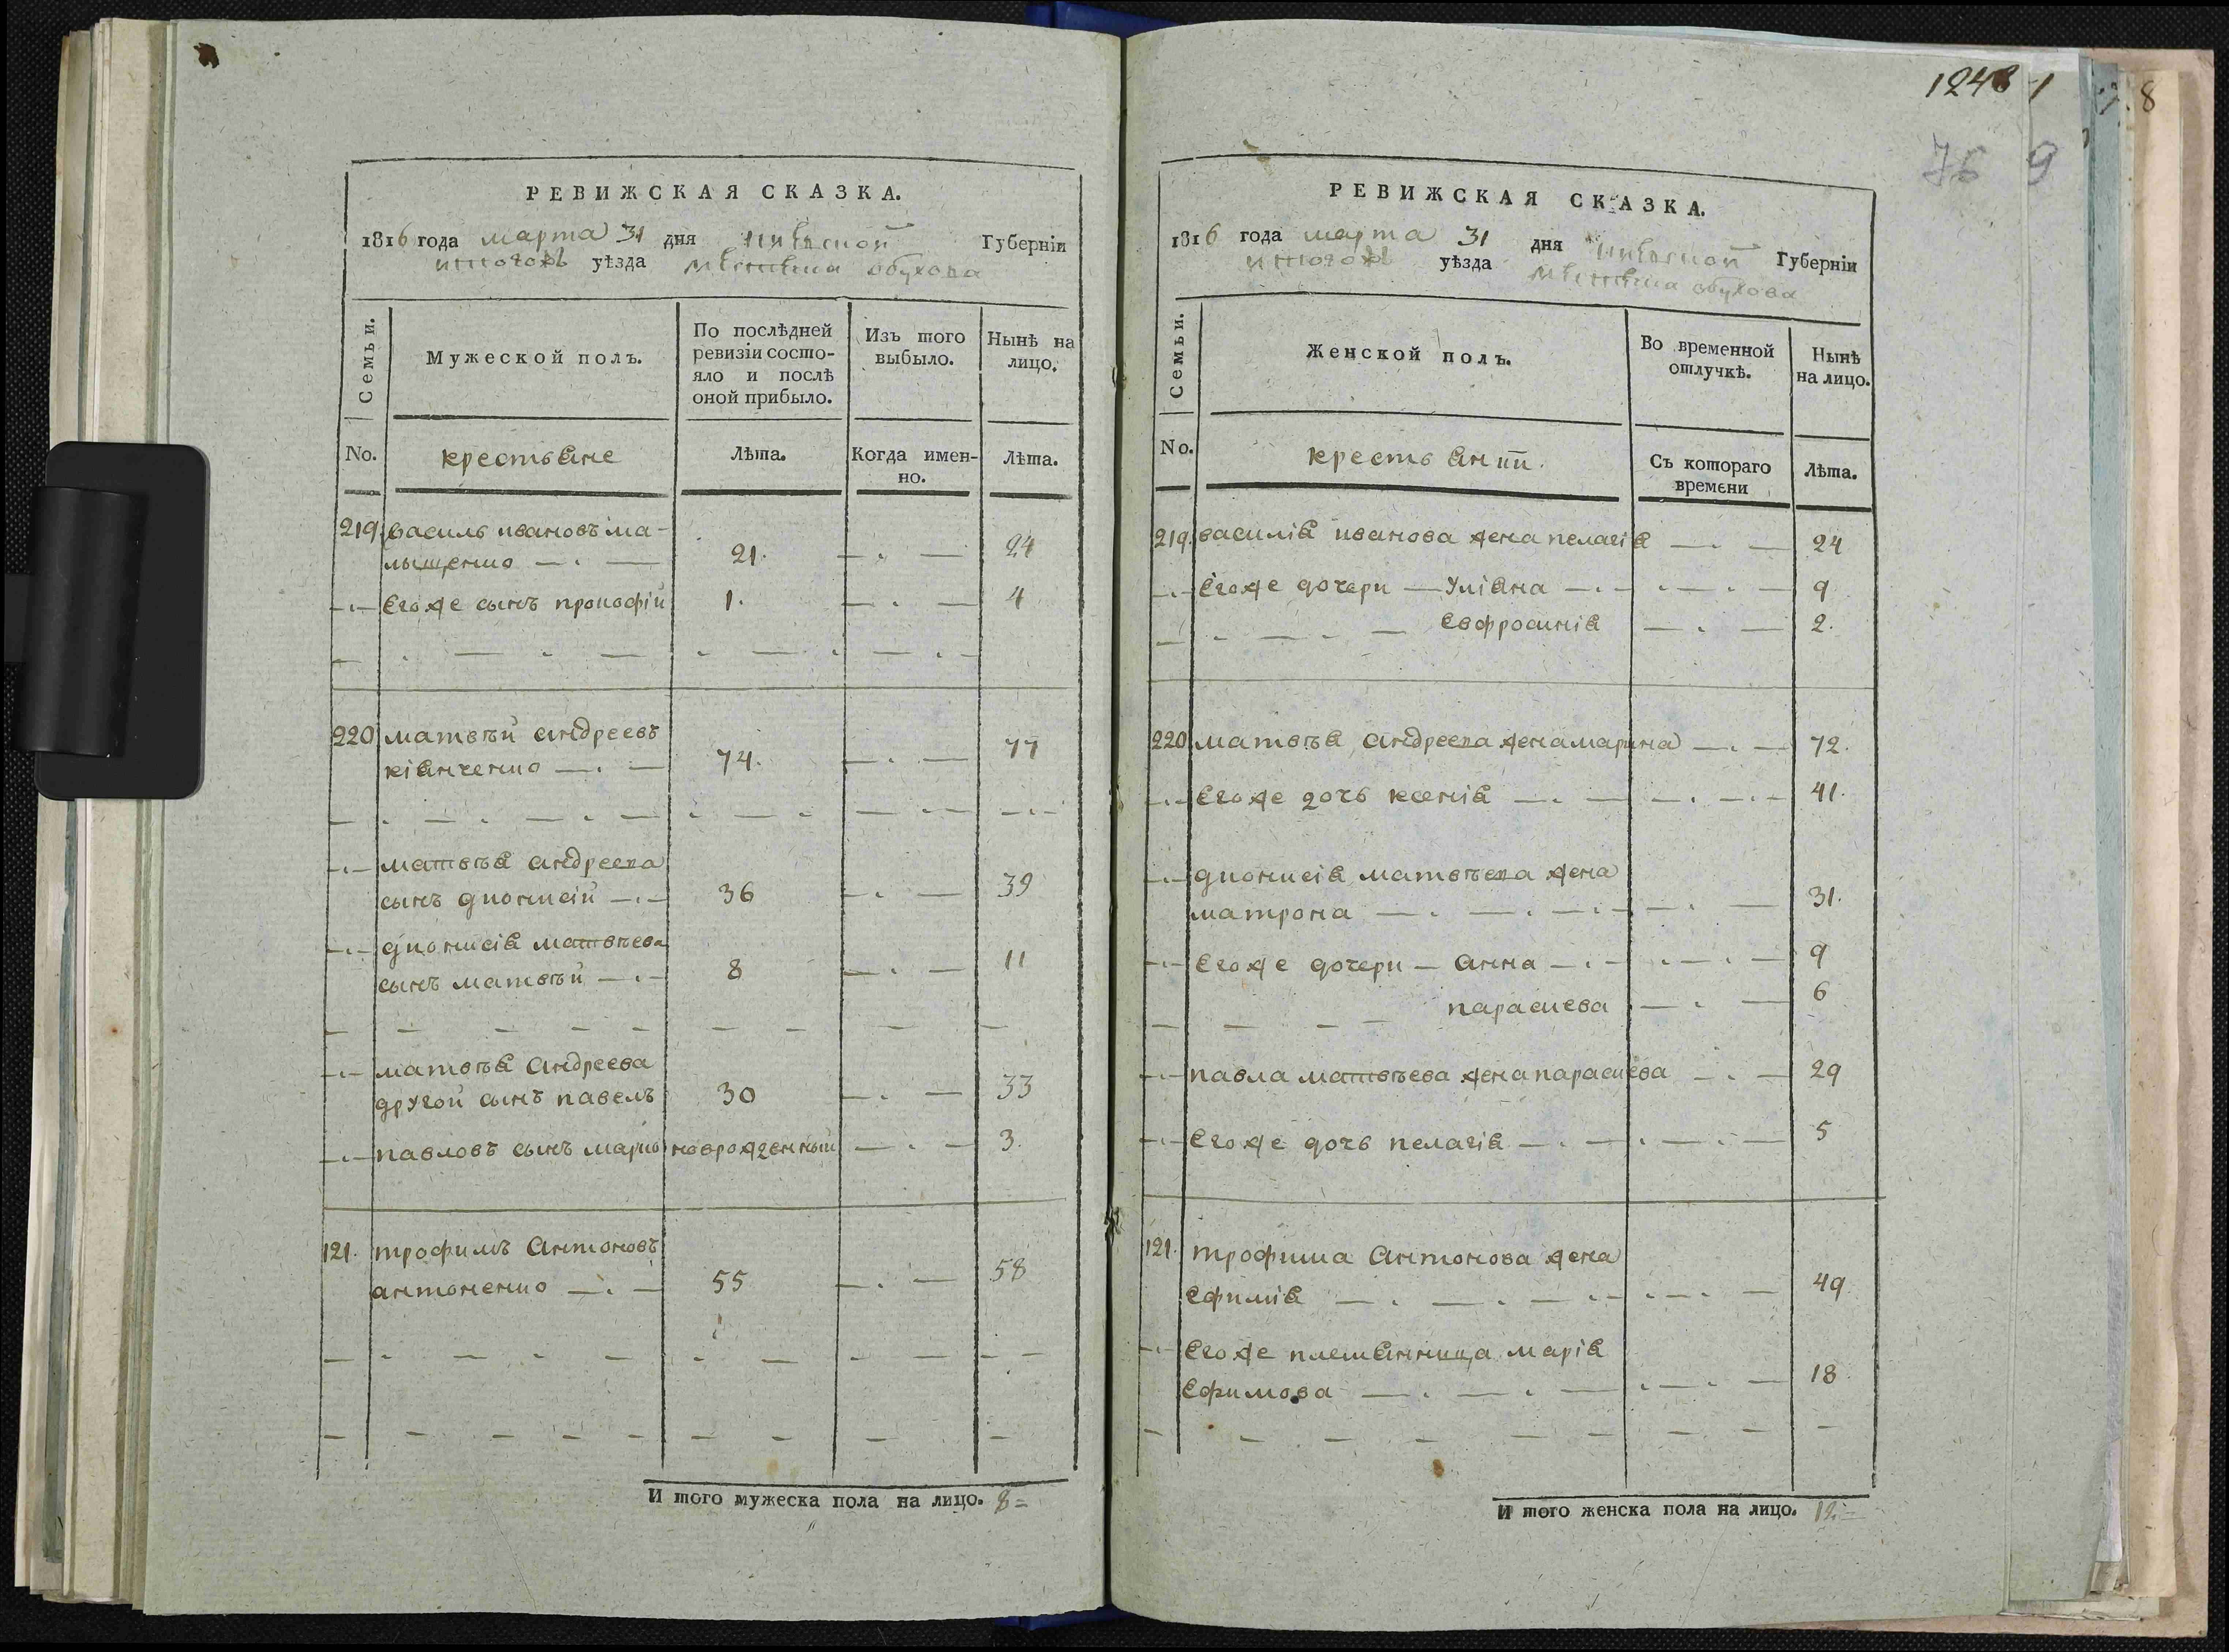 РЕВИЖСКАЯ СКАЗКА.
1816 года марта 31 дня киевской Губерніи
уѣзда местечка обухова
Семьи.
Мужеской полъ.
По послѣдней ревизіи состояло и послѣ оной прибыло.
Изъ того выбыло.
Нынѣ на лицо.
No.
крестьяне
Лѣта.
Когда именно.
Лѣта.
219. василь ивановъ ма-
лышенко 21. 24
Егоже сынъ прокофій 1. 4
220 матвѣй андреевъ
кіянченко 74. 77
матвѣя андреева
сынъ дионисій 36 39
дионисія матвѣева
сынъ матвѣй 8 11
матвѣя андреева
другой сынъ павелъ 30 33
павловъ сынъ марко новрожденный 3.
121. трофимъ антоновъ
антоненко 55 58
И того мужеска пола на лицо. 8=
1243
76 9
8
РЕВИЖСКАЯ СКАЗКА.
1816 года марта 31 дня киевской Губерніи
уѣзда местечка обухова
Семьи.
Женской полъ.
Во временной отлучкѣ.
Нынѣ на лицо.
No.
крестьянки.
Съ котораго времени
Лѣта.
219. василія иванова жена пелагія 24
Егоже дочери Уліяна 9
Евфросинія 2.
220 матвѣя андреева жена марина 72.
Егоже дочь ксенія 41.
дионисія матвѣева жена
матрона 31.
Егоже дочери анна 9
параскева 6
павла матвѣева жена параскева 29
Егоже дочь пелагія 5
121. трофима антонова жена
Ефимія 49
Егоже племянница марія
Ефимова 18.
И того женска пола на лицо. 12.=